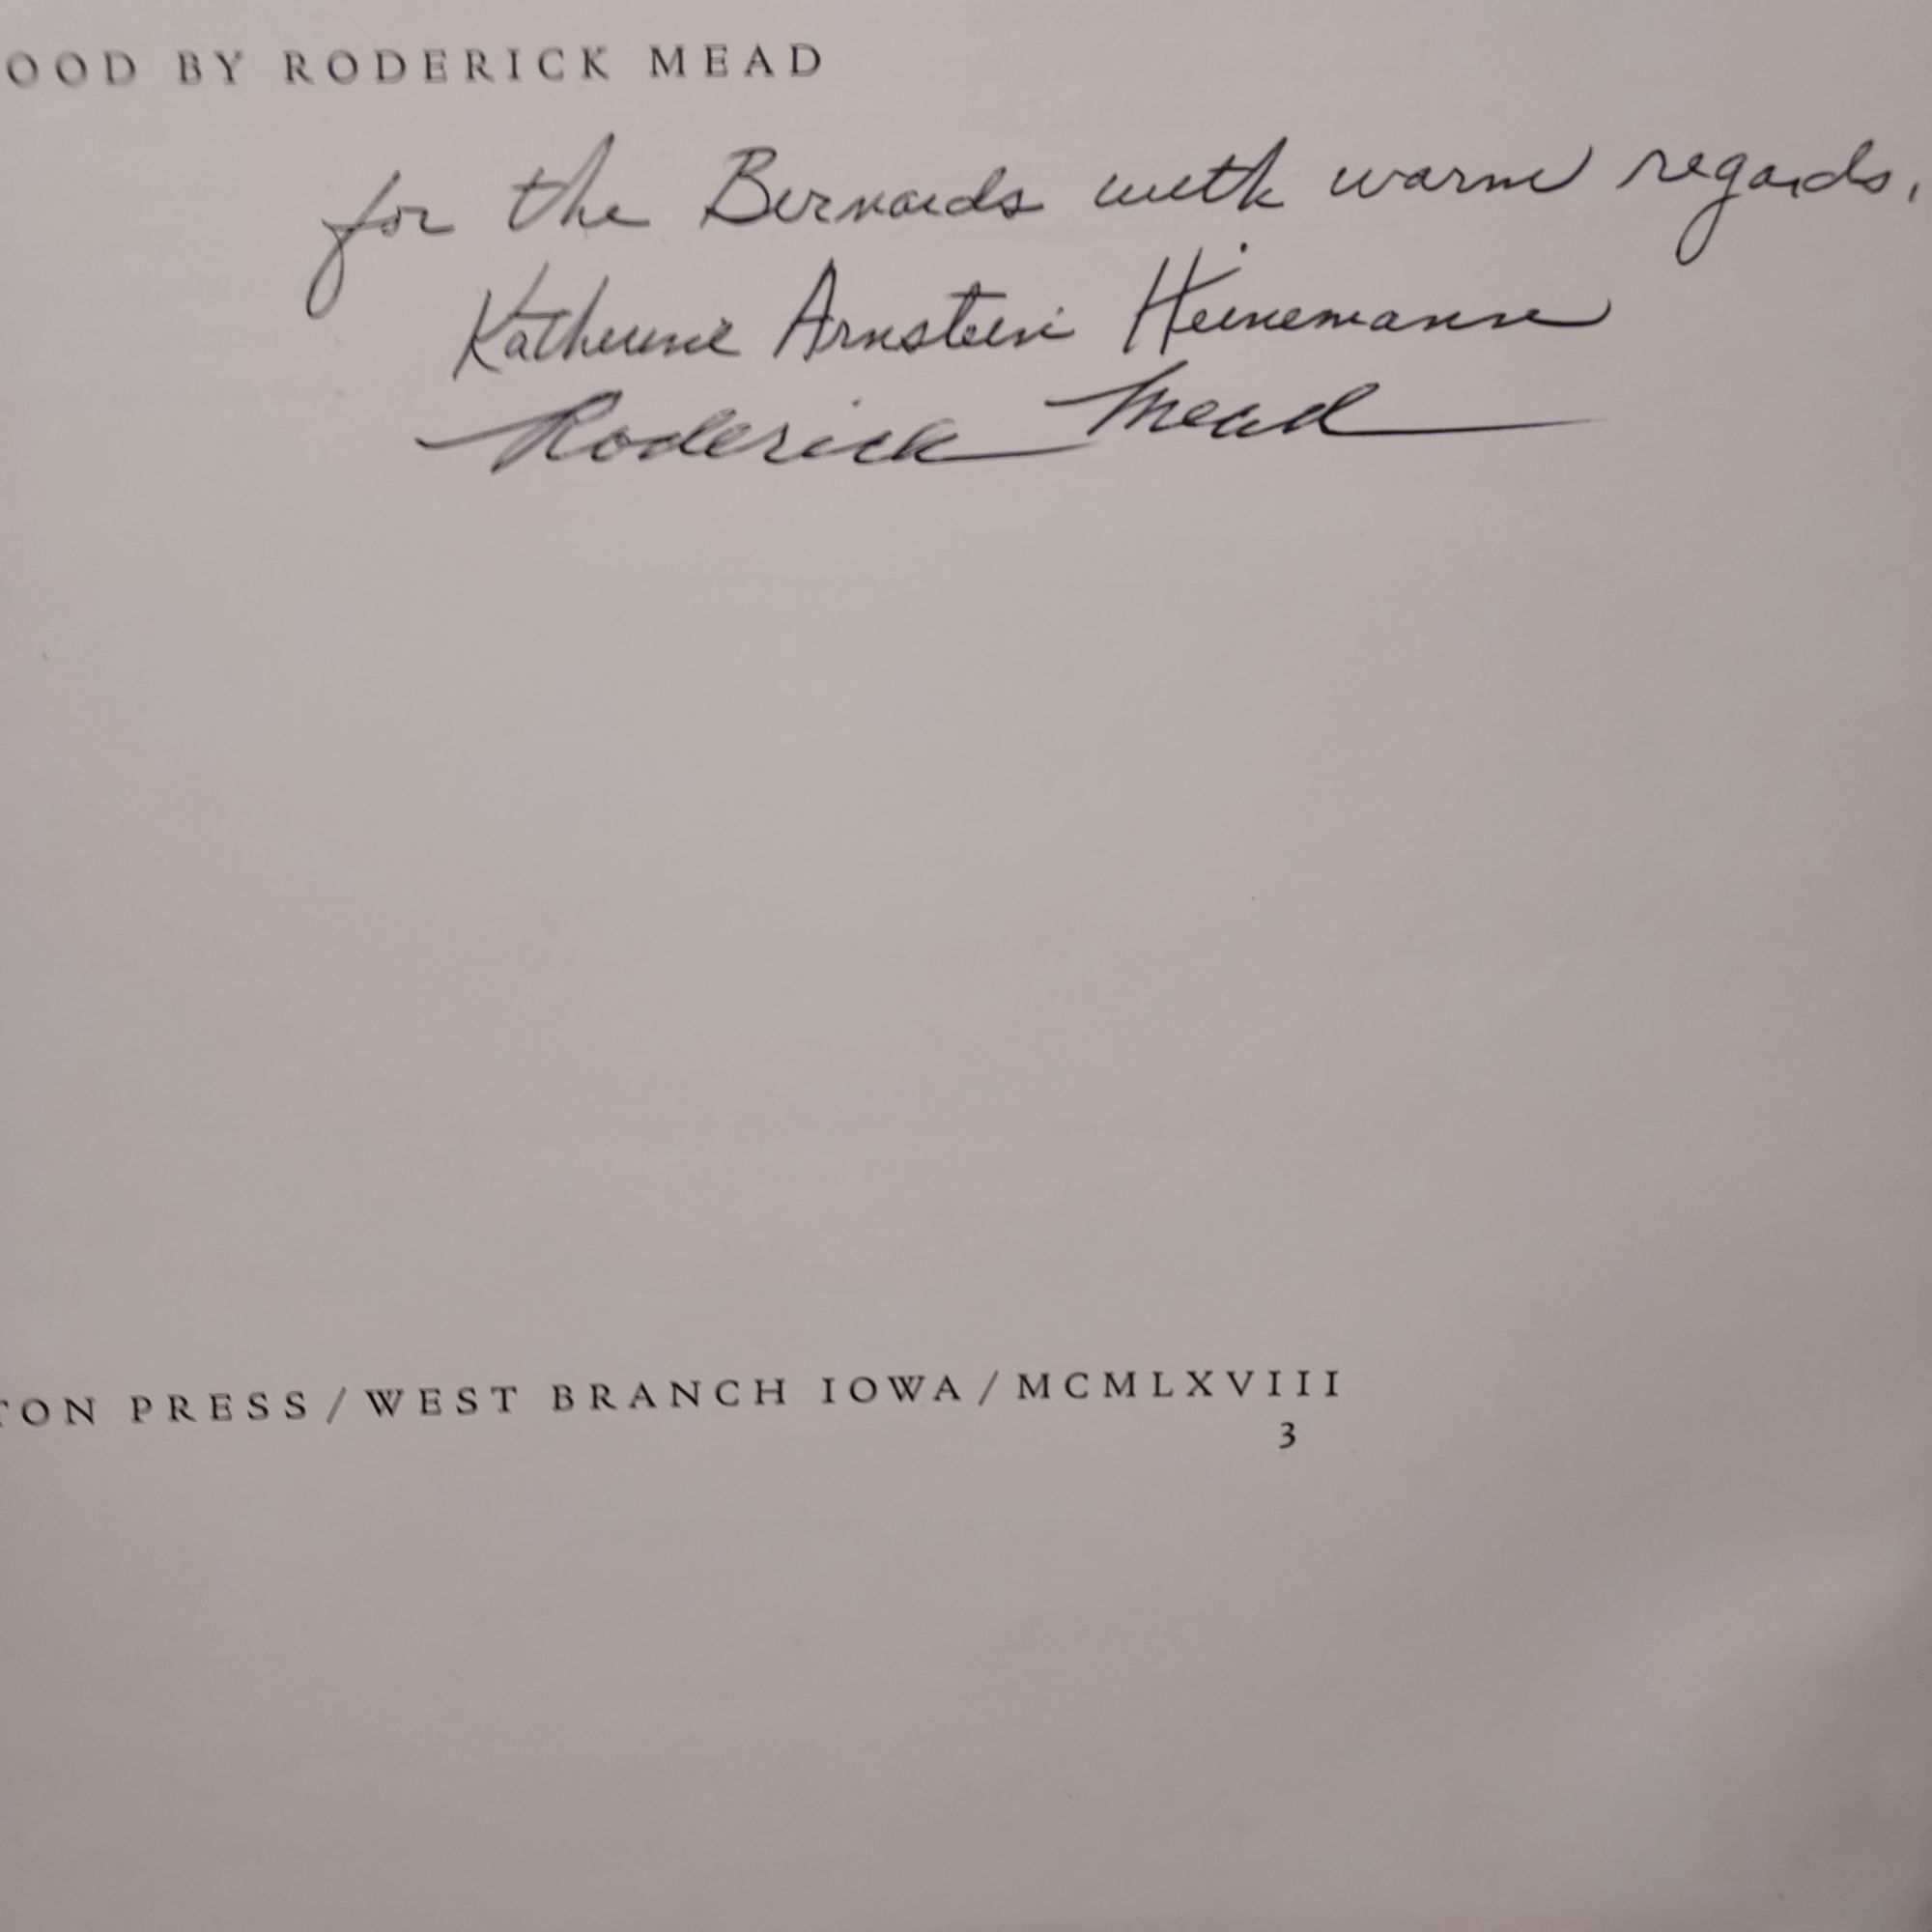 OOD BY RODERICK MEAD
for the Bernards with warm regards,
Katherine Arnstein Heinemann
Roderick Mead
TON PRESS/WEST BRANCH IOWA/MCMLXVIII
3